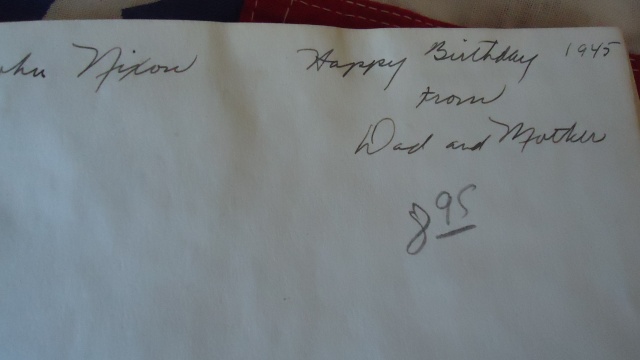 Nixon Happy Birthday 1945
From
Dad and Mother
8 95